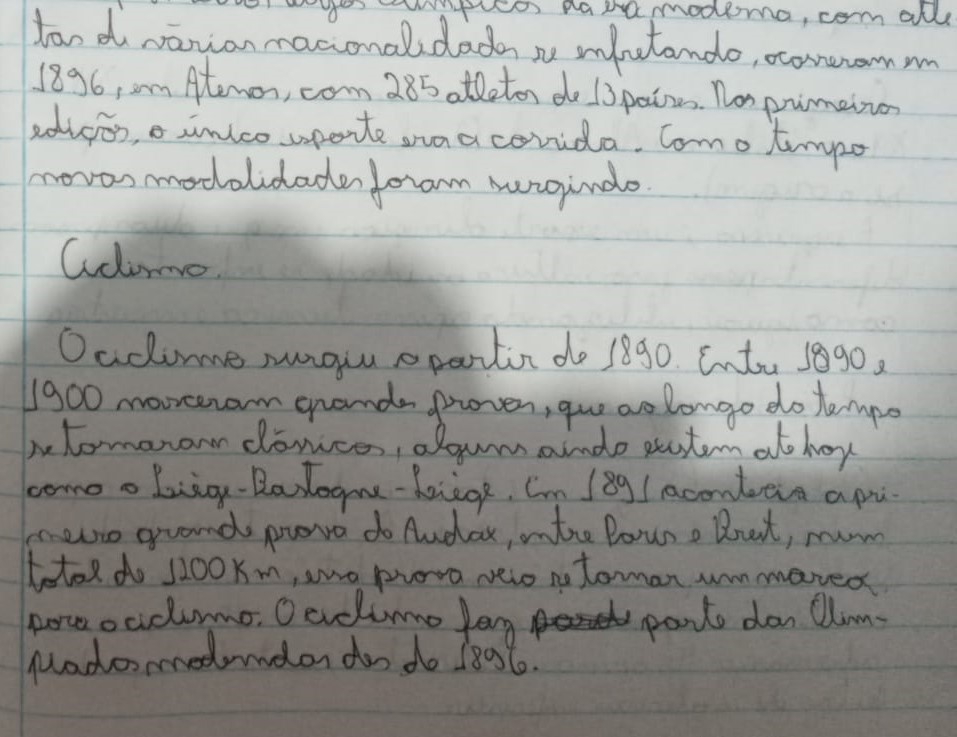 jogos olímpicos da era moderna, com atle-
tas de várias nacionalidades se enfretando, ocorreram em
1896, em Atenas, com 285 atletas de 13 países. Nas primeiras
edições, o único esporte era a corrida. Com o tempo
novas modalidades foram surgindo.
Ciclismo.
O ciclismo surgiu a partir de 1890. Entre 1890 e
1900 nasceram grandes provas, que ao longo do tempo
se tornaram clássicos, alguns ainda existem até hoje
como o Liège-Bastogne-Leiège. Em 1891 acontecia a pri-
meira grande prova do Audax, entre Paris e Brest, num
total de 1200 Km, essa prova veio se tornar um marca
para o ciclismo. O ciclismo faz parte das Olim-
piadas modernas des de 1896.